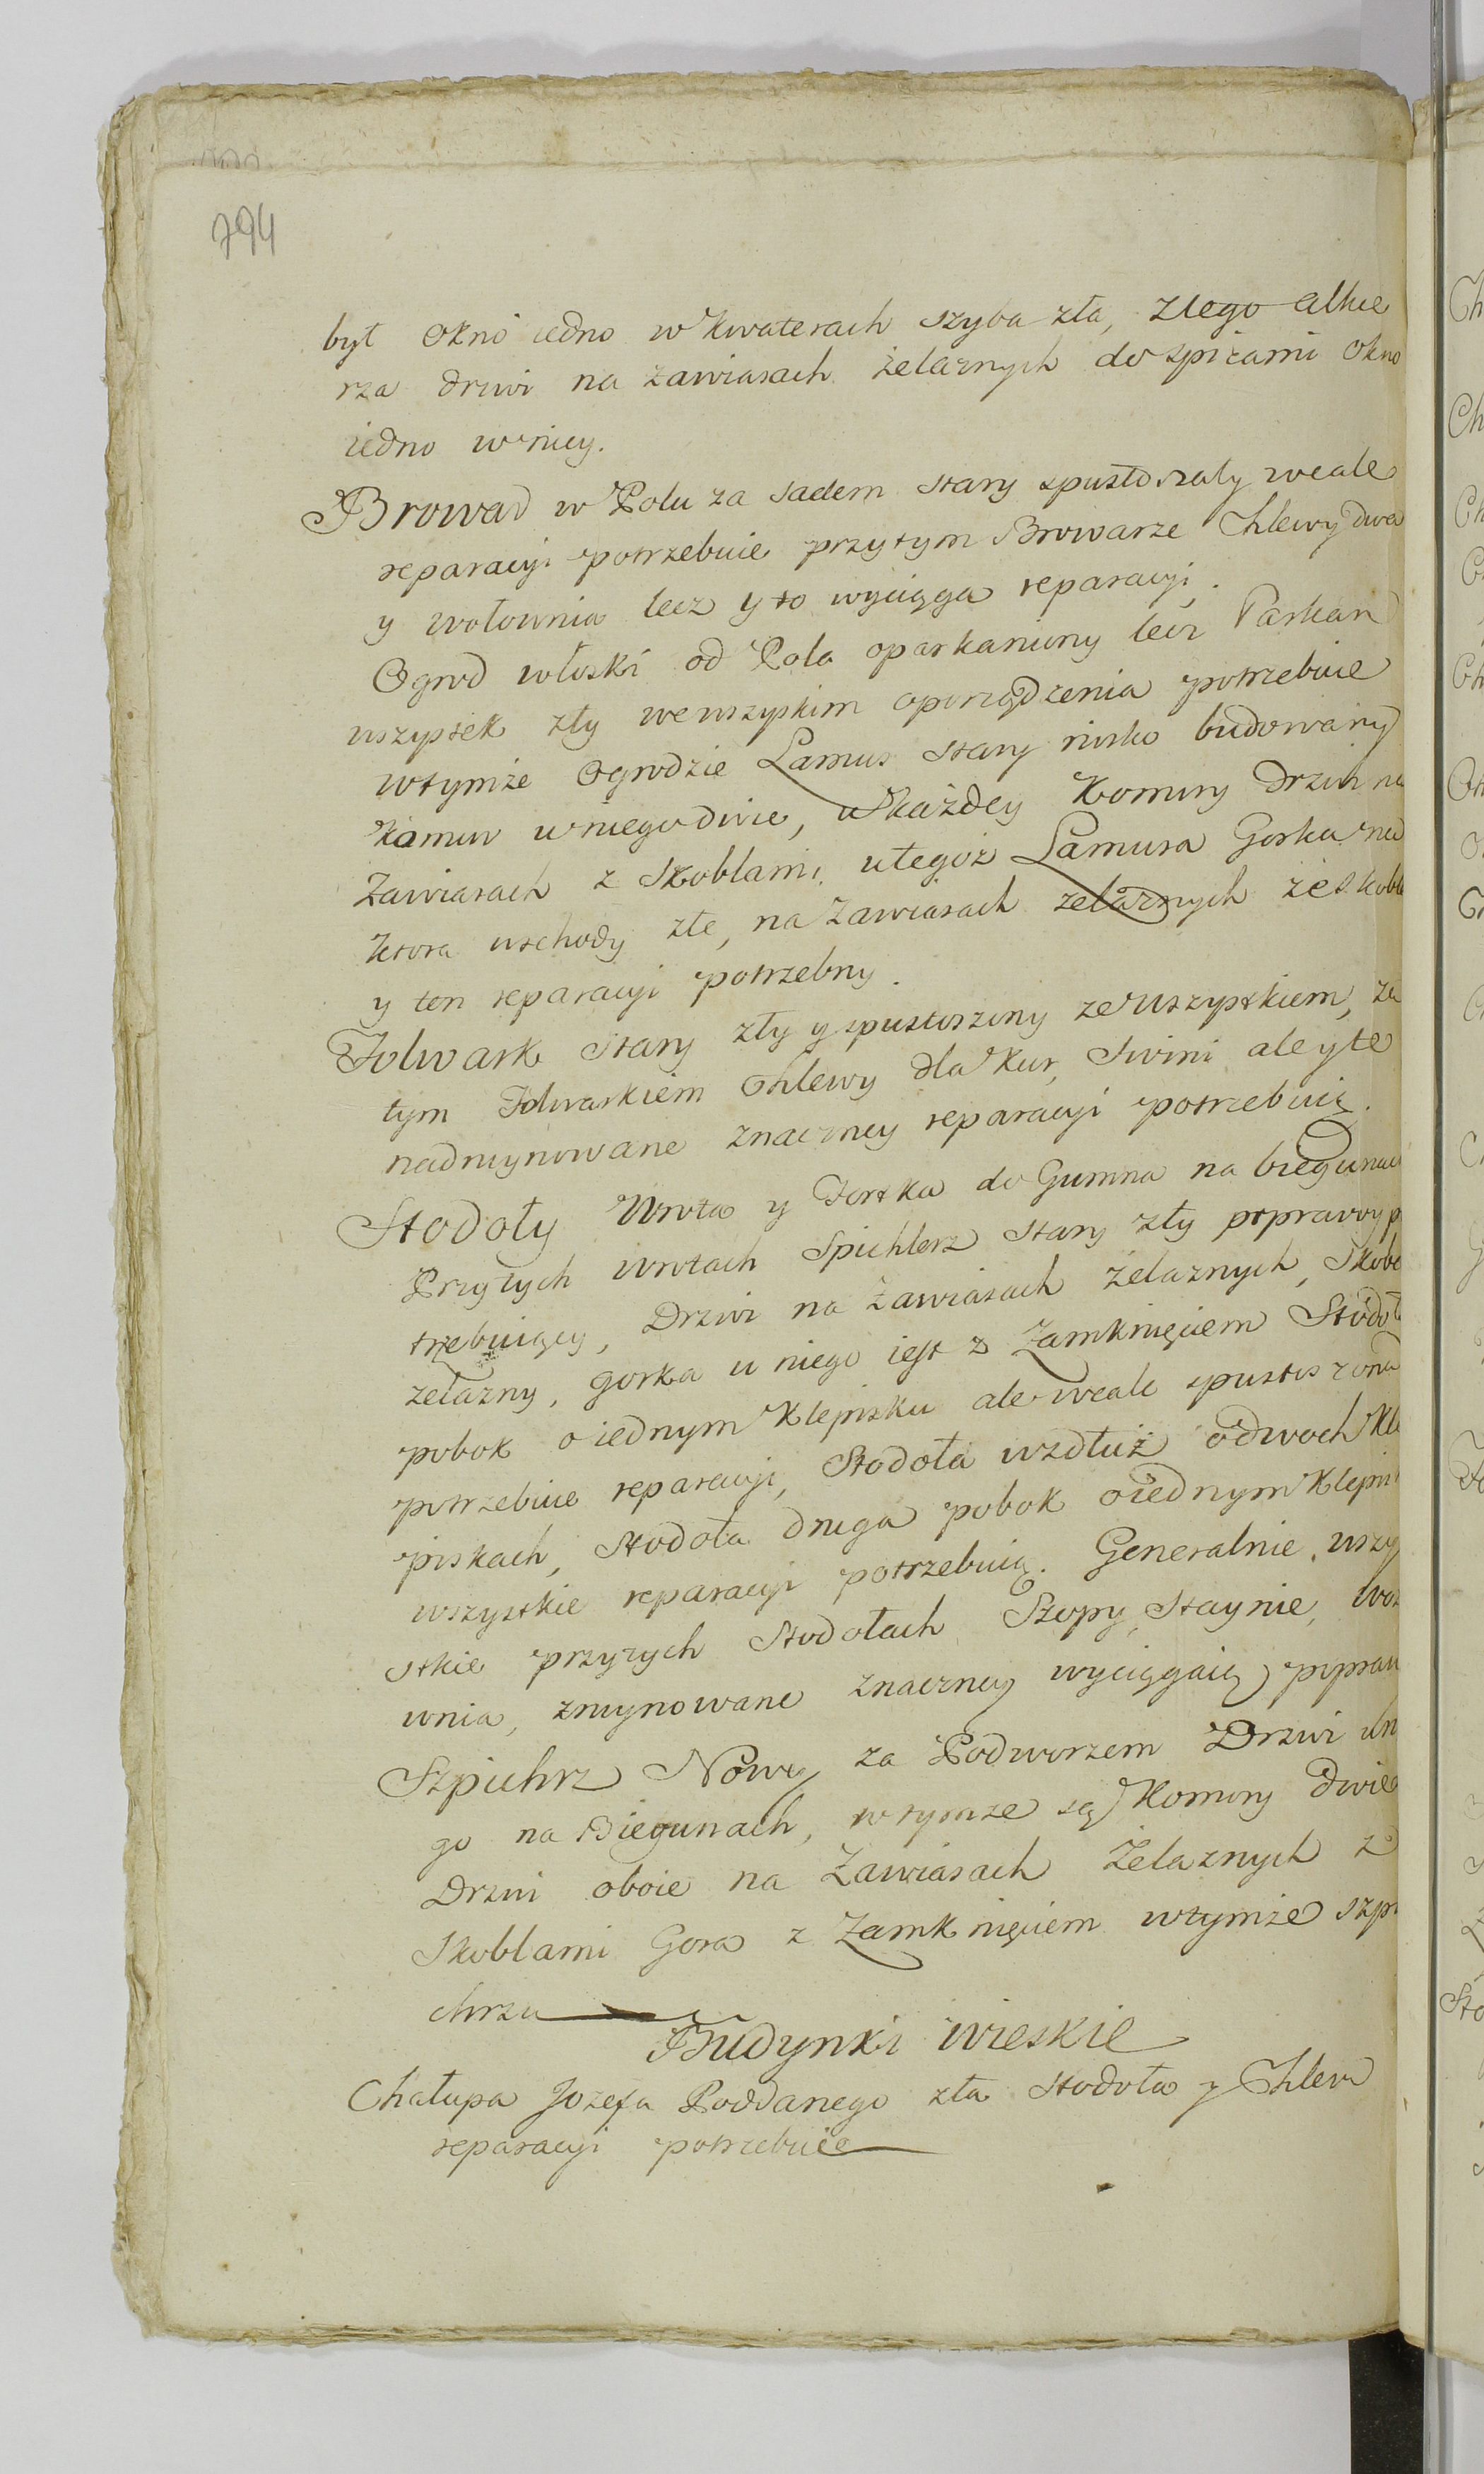 794
był okno iedno w kwaterach szyba zła, z tego Alkie
rza drzwi na zawiasach żelaznych do spiżarni okno
iedno w niey.
Browar w Polu za sadem stary spustoszały wcale
reparacyi potrzebuie przy tym Browarze Chlewy dwa
y wołownia lecz y to wyciąga reparacyi.
Ogrod włoski od Pola oparkaniony lecz Parkan
wszystek zły we wszyskim oporządzenia potrzebuie
w tymże Ogrodzie Lamus stary nisko budowany
Komor u niego dwie, u każdey Komory drzwi na
Zawiasach z Skoblami, u tegoż Lamusa Gorka na
ktora wschody złe, na Zawiasach żelaznych ze skobl
y ten reparacyi potrzebny.
Folwark stary zły y spustoszony ze wszystkiem, za
tym Folwarkiem Chlewy dla Kur, Swini ale y te
nadruynowane znaczney reparacyi potrzebuią.
Stodoły Wrota y Fortka do Gumna na biegunach
Przy tych wrotach Spichlerz stary zły poprawy p
trzebuiący, Drzwi na Zawiasach żelaznych, Skobe
żelazny, gorka u niego iest z Zamknięciem Stodoł
pobok o iednym Klepisku ale wcale spustoszona
potrzebuie reparacyi, Stodoła wzdłuż o dwoch Kle
piskach, Stodoła druga pobok o iednym Klepis
wszystkie reparacyi potrzebuią. Generalnie wszy
stkie przy tych Stodołach Szopy, Staynie, Woz
wnia, zruynowane znaczney wyciągaią popraw
Szpichrz Nowy za Podworzem Drzwi u n
go na Biegunach, w tymże są Komory dwie
Drzwi oboie na Zawiasach Żelaznych z
Skoblami Gora z Zamknięciem w tymże szpi
chrzu
Budynki Wieskie
Chałupa Jozefa Poddanego zła stodoła y Chlew
reparacyi potrzebuie